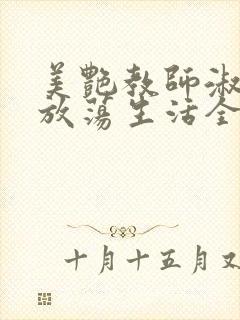 美艷教師淑
放蕩生活全
十月十五月又